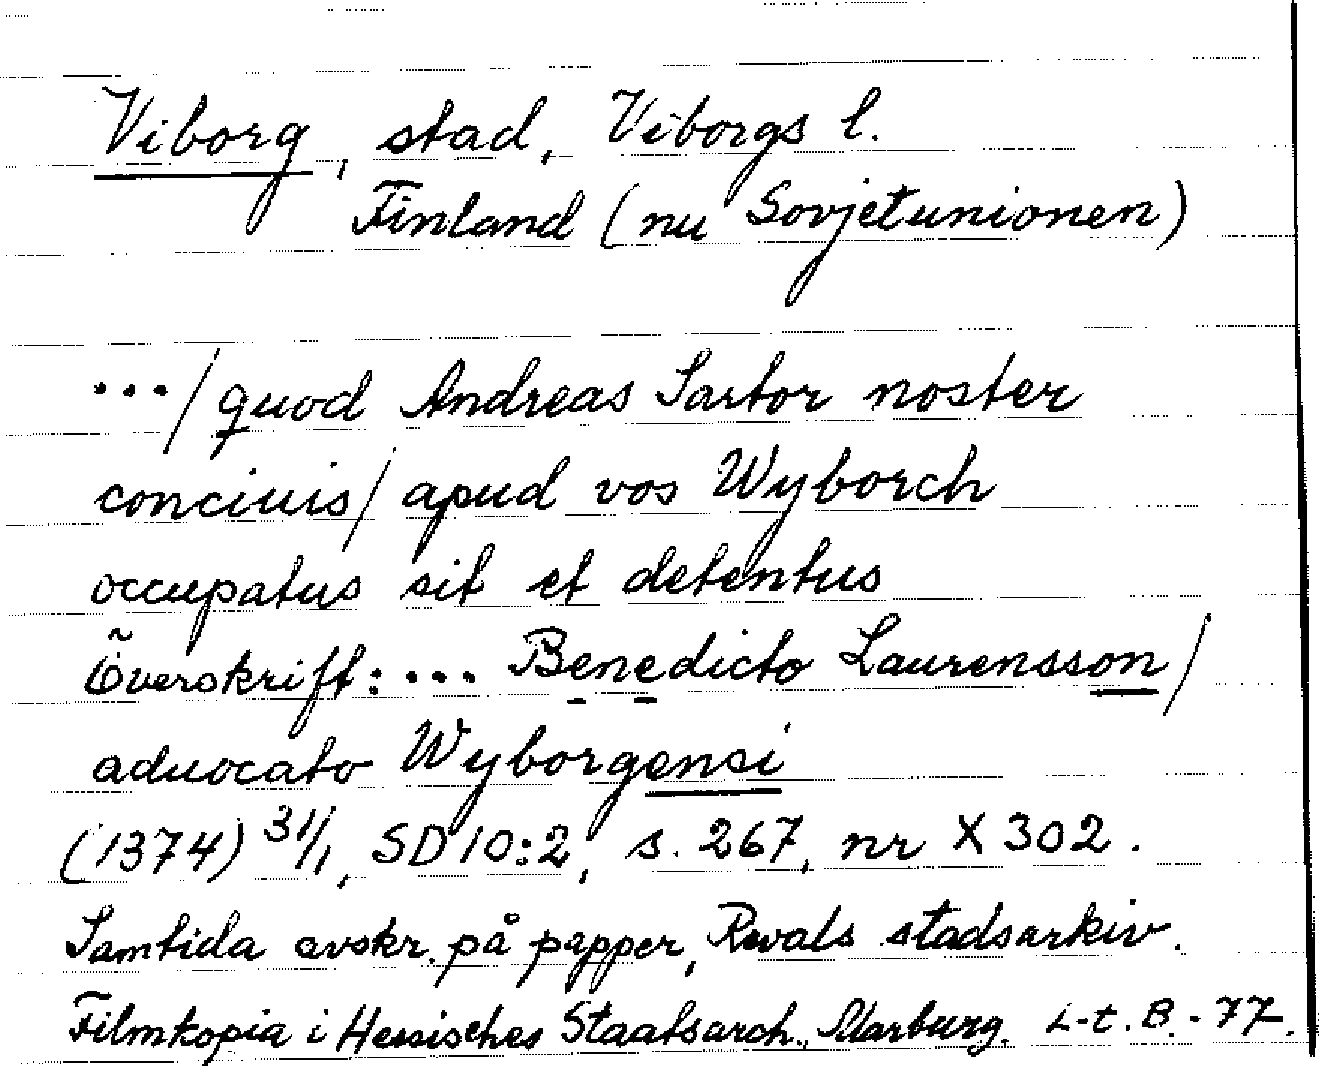 Viborg, stad, Viborgs l.
Finland (nu Sovjetunionen)
.../quod Andreas Sartor noster
conciuis/ apud vos Wyborch
occupatus sit et detentus
Överskrift:.... Benedicto Laurensson/
aduocato Wyborgensi
(1374) 31/1, SD 10:2, s. 267, nr X 302.
Samtida avskr. på papper, Revals stadsarkiv.
Filmkopia i Hessisches Staatsarch., Marburg. L-t. B.-77.